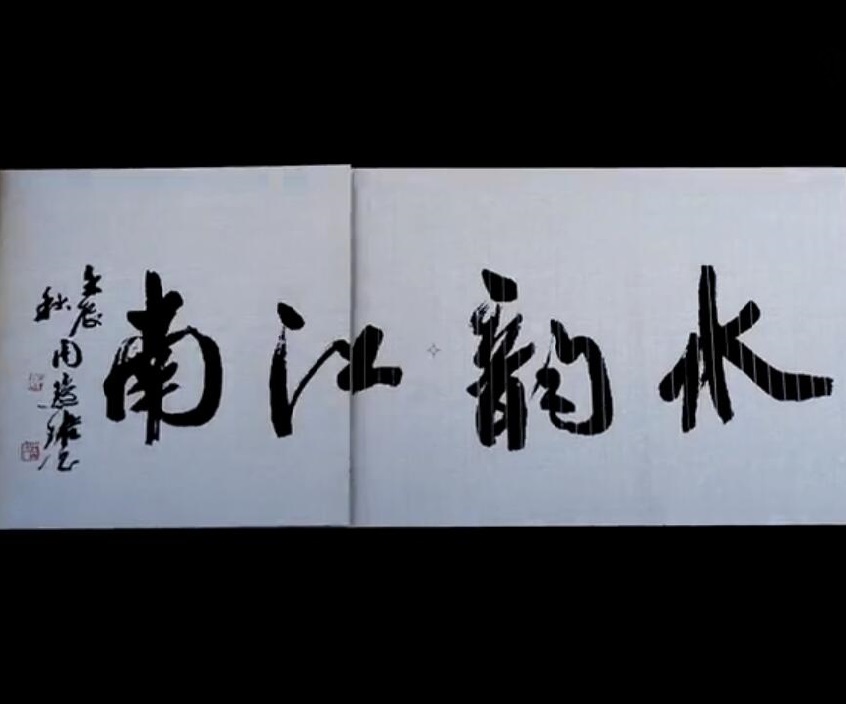 水韵江南
壬辰
秋
周